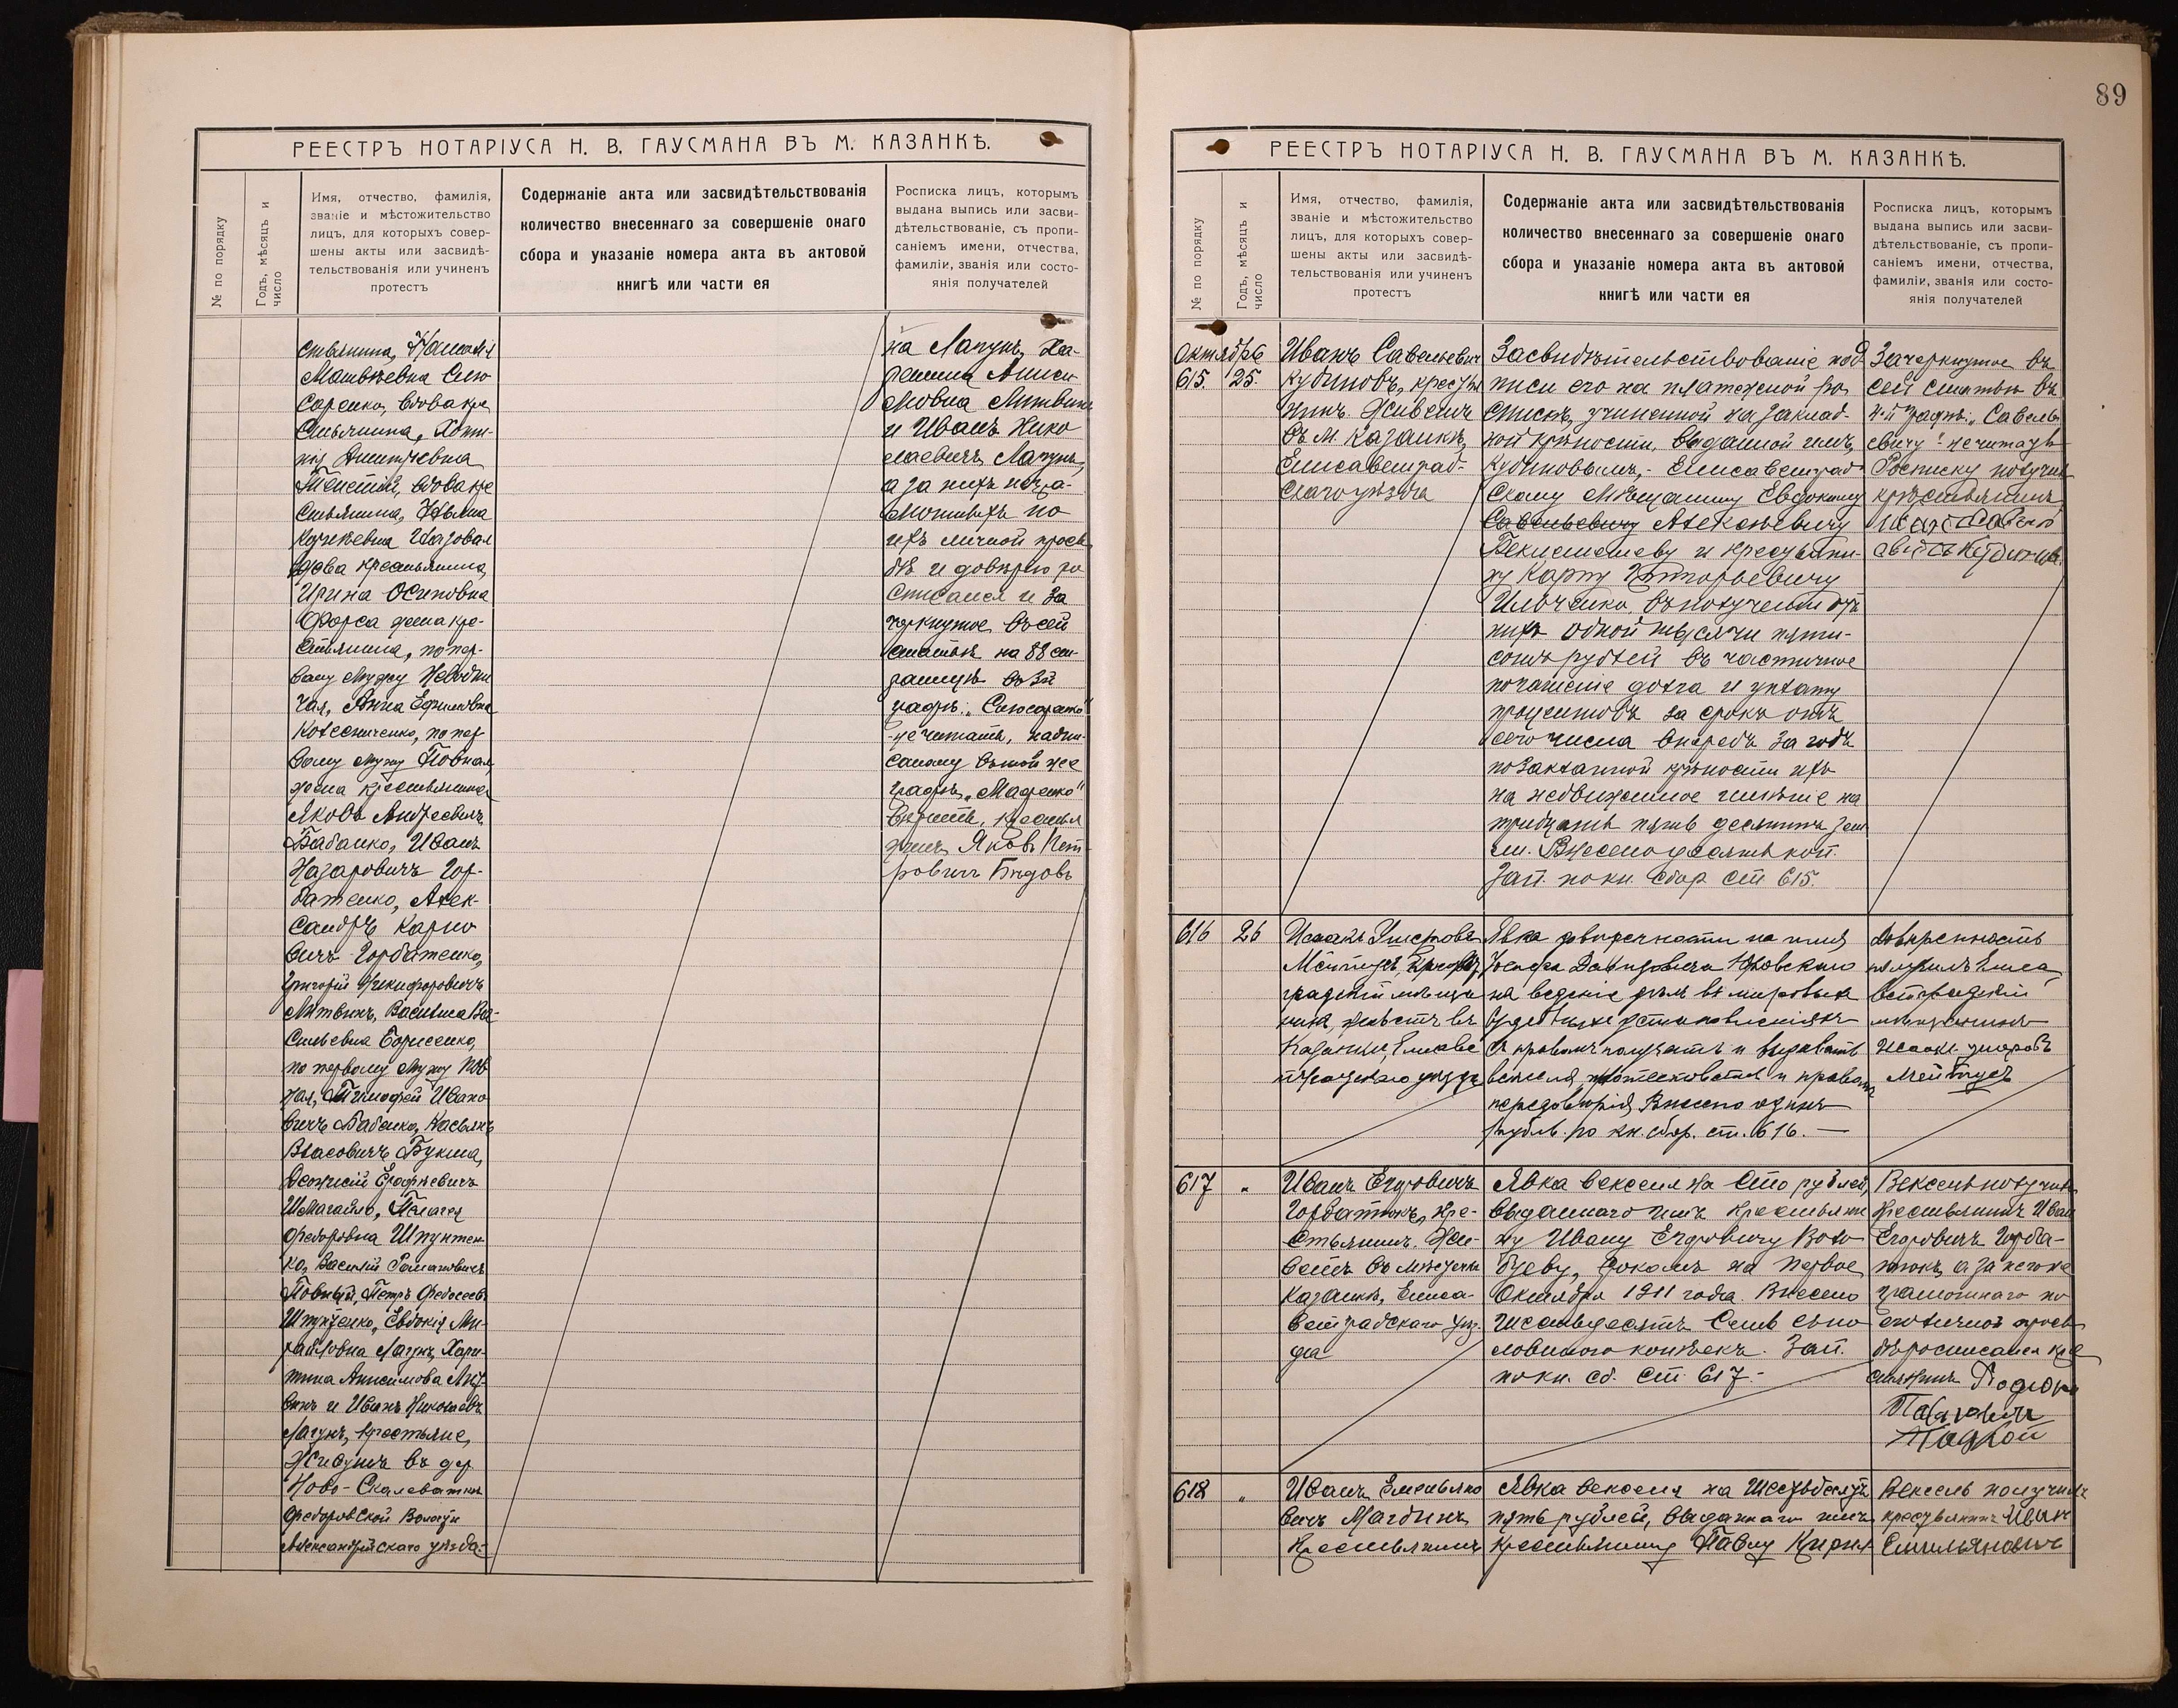 РЕЕСТРЪ НОТАРІУСА Н. В. ГАУСМАНА ВЪ М. КАЗАНКѢ.
№ по порядку
Годъ, мѣсяцъ и
число
Имя, отчество, фамилія,
званіе и мѣстожительство
лицъ, для которыхъ совер-
шены акты или засвидѣ-
тельствованія или учиненъ
протестъ
Содержаніе акта или засвидѣтельствованія
количество внесеннаго за совершеніе онаго
сбора и указаніе номера акта въ актовой
книгѣ или части ея
Росписка лицъ, которымъ
выдана выпись или засви-
дѣтельствованіе, съ пропи-
саніемъ имени, отчества,
фамиліи, званія или состо-
янія получателей
стьянина, Наталія
Матвѣевна Слю
саренко, вдова кре
стьянина,
вдова кре
стьянина,
вдова крестьянина,
Ирина Осиповна
жена кре-
стьянина, по пер-
вому мужу
Анна Ефимовна
Колесниченко, по пер
вому мужу Повная,
жена крестьянина
Яковъ Андреевичъ
Бабанко, Иванъ
Назаровичъ Гор-
батенко, Алек-
сандръ Карпо
вичъ Горбатенко,
Григорій Никифоровичъ
Литвинъ, Василиса Ва-
сильевна Борисенко,
по первому мужу Пов
ная, Тимофей Ивано
вичъ Бабенко, Касьянъ
Власовичъ Букша,
Шемагайло, Пелагея
Федоровна Шпунтен-
ко, Василій Романовичъ
Повный, Петръ Федосеев.
Шпунтенко, Евдокія Ми-
хайловна Лагунъ, Хари-
тина Анисимова Лит-
винъ и Иванъ Николаевъ
Лагунъ, крестьяне,
Живутъ въ дер
Ново-Скалеваткѣ
Федоровской Волости
Александрійскаго уѣзда.
на Лагунъ, Ха-
ритина Аниси
мовна Литвинъ
и Иванъ Нико
лаевичъ Лагунъ,
а за нихъ негра-
мотныхъ по
ихъ личной прось
бѣ и довѣрію ро
списался и за
черкнутое въ сей
статьѣ на 88 ст-
раницѣ въ 3й
графѣ: „Слюсаренко"
-не читать, надпи-
санному въ той же
графѣ
вѣрить, крестья
нинъ Яковъ Пет-
ровичъ Бѣдовъ
89
РЕЕСТРЪ НОТАРІУСА Н. В. ГАУСМАНА ВЪ М. КАЗАНКѢ.
№ по порядку
Годъ, мѣсяцъ и
число
Имя, отчество, фамилія,
званіе и мѣстожительство
лицъ, для которыхъ совер-
шены акты или засвидѣ-
тельствованія или учиненъ
протестъ
Содержаніе акта или засвидѣтельствованія
количество внесеннаго за совершеніе онаго
сбора и указаніе номера акта въ актовой
книгѣ или части ея
Росписка лицъ, которымъ
выдана выпись или засви-
дѣтельствованіе, съ пропи-
саніемъ имени, отчества,
фамиліи, званія или состо-
янія получателей
Октября
615. 25.
Иванъ Савельевичъ
Кудиновъ, крестья
нинъ. Живетъ
въ м. Казанкѣ,
Елисаветград-
скаго уѣзда
Засвидѣтельствованіе под
писи его на платежной ро
спискѣ, учиненной на заклад-
ной крѣпости, выданной имъ,
Кудиновымъ,- Елисаветград-
скому мѣщанину Евдокиму
Савельевичу Алексѣевичу
и крестьяни-
ну Карпу Григорьевичу
Ильченко, въ полученіи отъ
нихъ одной тысячи пяти-
сотъ рублей въ частичное
погашеніе долга и уплату
процентовъ за срокъ отъ
сего числа впередъ за годъ
по закладной крѣпости ихъ
на недвижимое имѣніе на
тридцать пять десятинъ зем
ли. Внесено десять коп.
Зап. по кн. сбор. ст. 615.
Зачеркнутое въ
сей статьѣ въ
4-й графѣ: „Савель
евичу" не читать
Росписку получилъ
крестьянинъ
Иванъ Савель
евичъ Кудиновъ.
616 26
Исаакъ
Мейтусъ,
градскій мѣща
нинъ, живетъ въ
Казанкѣ, Елисаве
тградскаго уѣзда
Явка довѣренности на имя
Іосифа Давидовича Юровскаго
на веденіе дѣлъ въ мировыхъ
судебныхъ установленіяхъ
съ правомъ получать и выдавать
векселя, и правомъ
передовѣрія. Внесено одинъ
рубль. По кн. сбор. ст. 616. —
Довѣренность
получилъ Елиса
ветградскій
мѣщанинъ
Исаакъ
Мейтусъ
617 "
Иванъ Егоровичъ
Горбатюкъ, кре-
стьянинъ. Жи-
ветъ въ мѣстечкѣ
Казанкѣ, Елиса-
ветградскаго уѣз-
да
Явка векселя на Сто рублей,
выданнаго имъ крестьяни
ну Ивану Егоровичу Коло
дееву, срокомъ на первое
Октября 1911 года. Внесено
шестьдесятъ семь съ по
ловиною копѣекъ. Зап.
по кн. сб. ст. 617.-
Вексель получилъ
крестьянинъ Иван
Егоровичъ Горба-
тюкъ, а за него не
грамотнаго по
его личной прось
бѣ росписался кре
стьянинъ
618 "
Иванъ Емельяно
вичъ Магдинъ,
крестьянинъ
Явка векселя на Шестьдесятъ
пять рублей, выданнаго имъ
крестьянину Павлу Кирил
Вексель получилъ
крестьянинъ Иван
Емильяновичъ